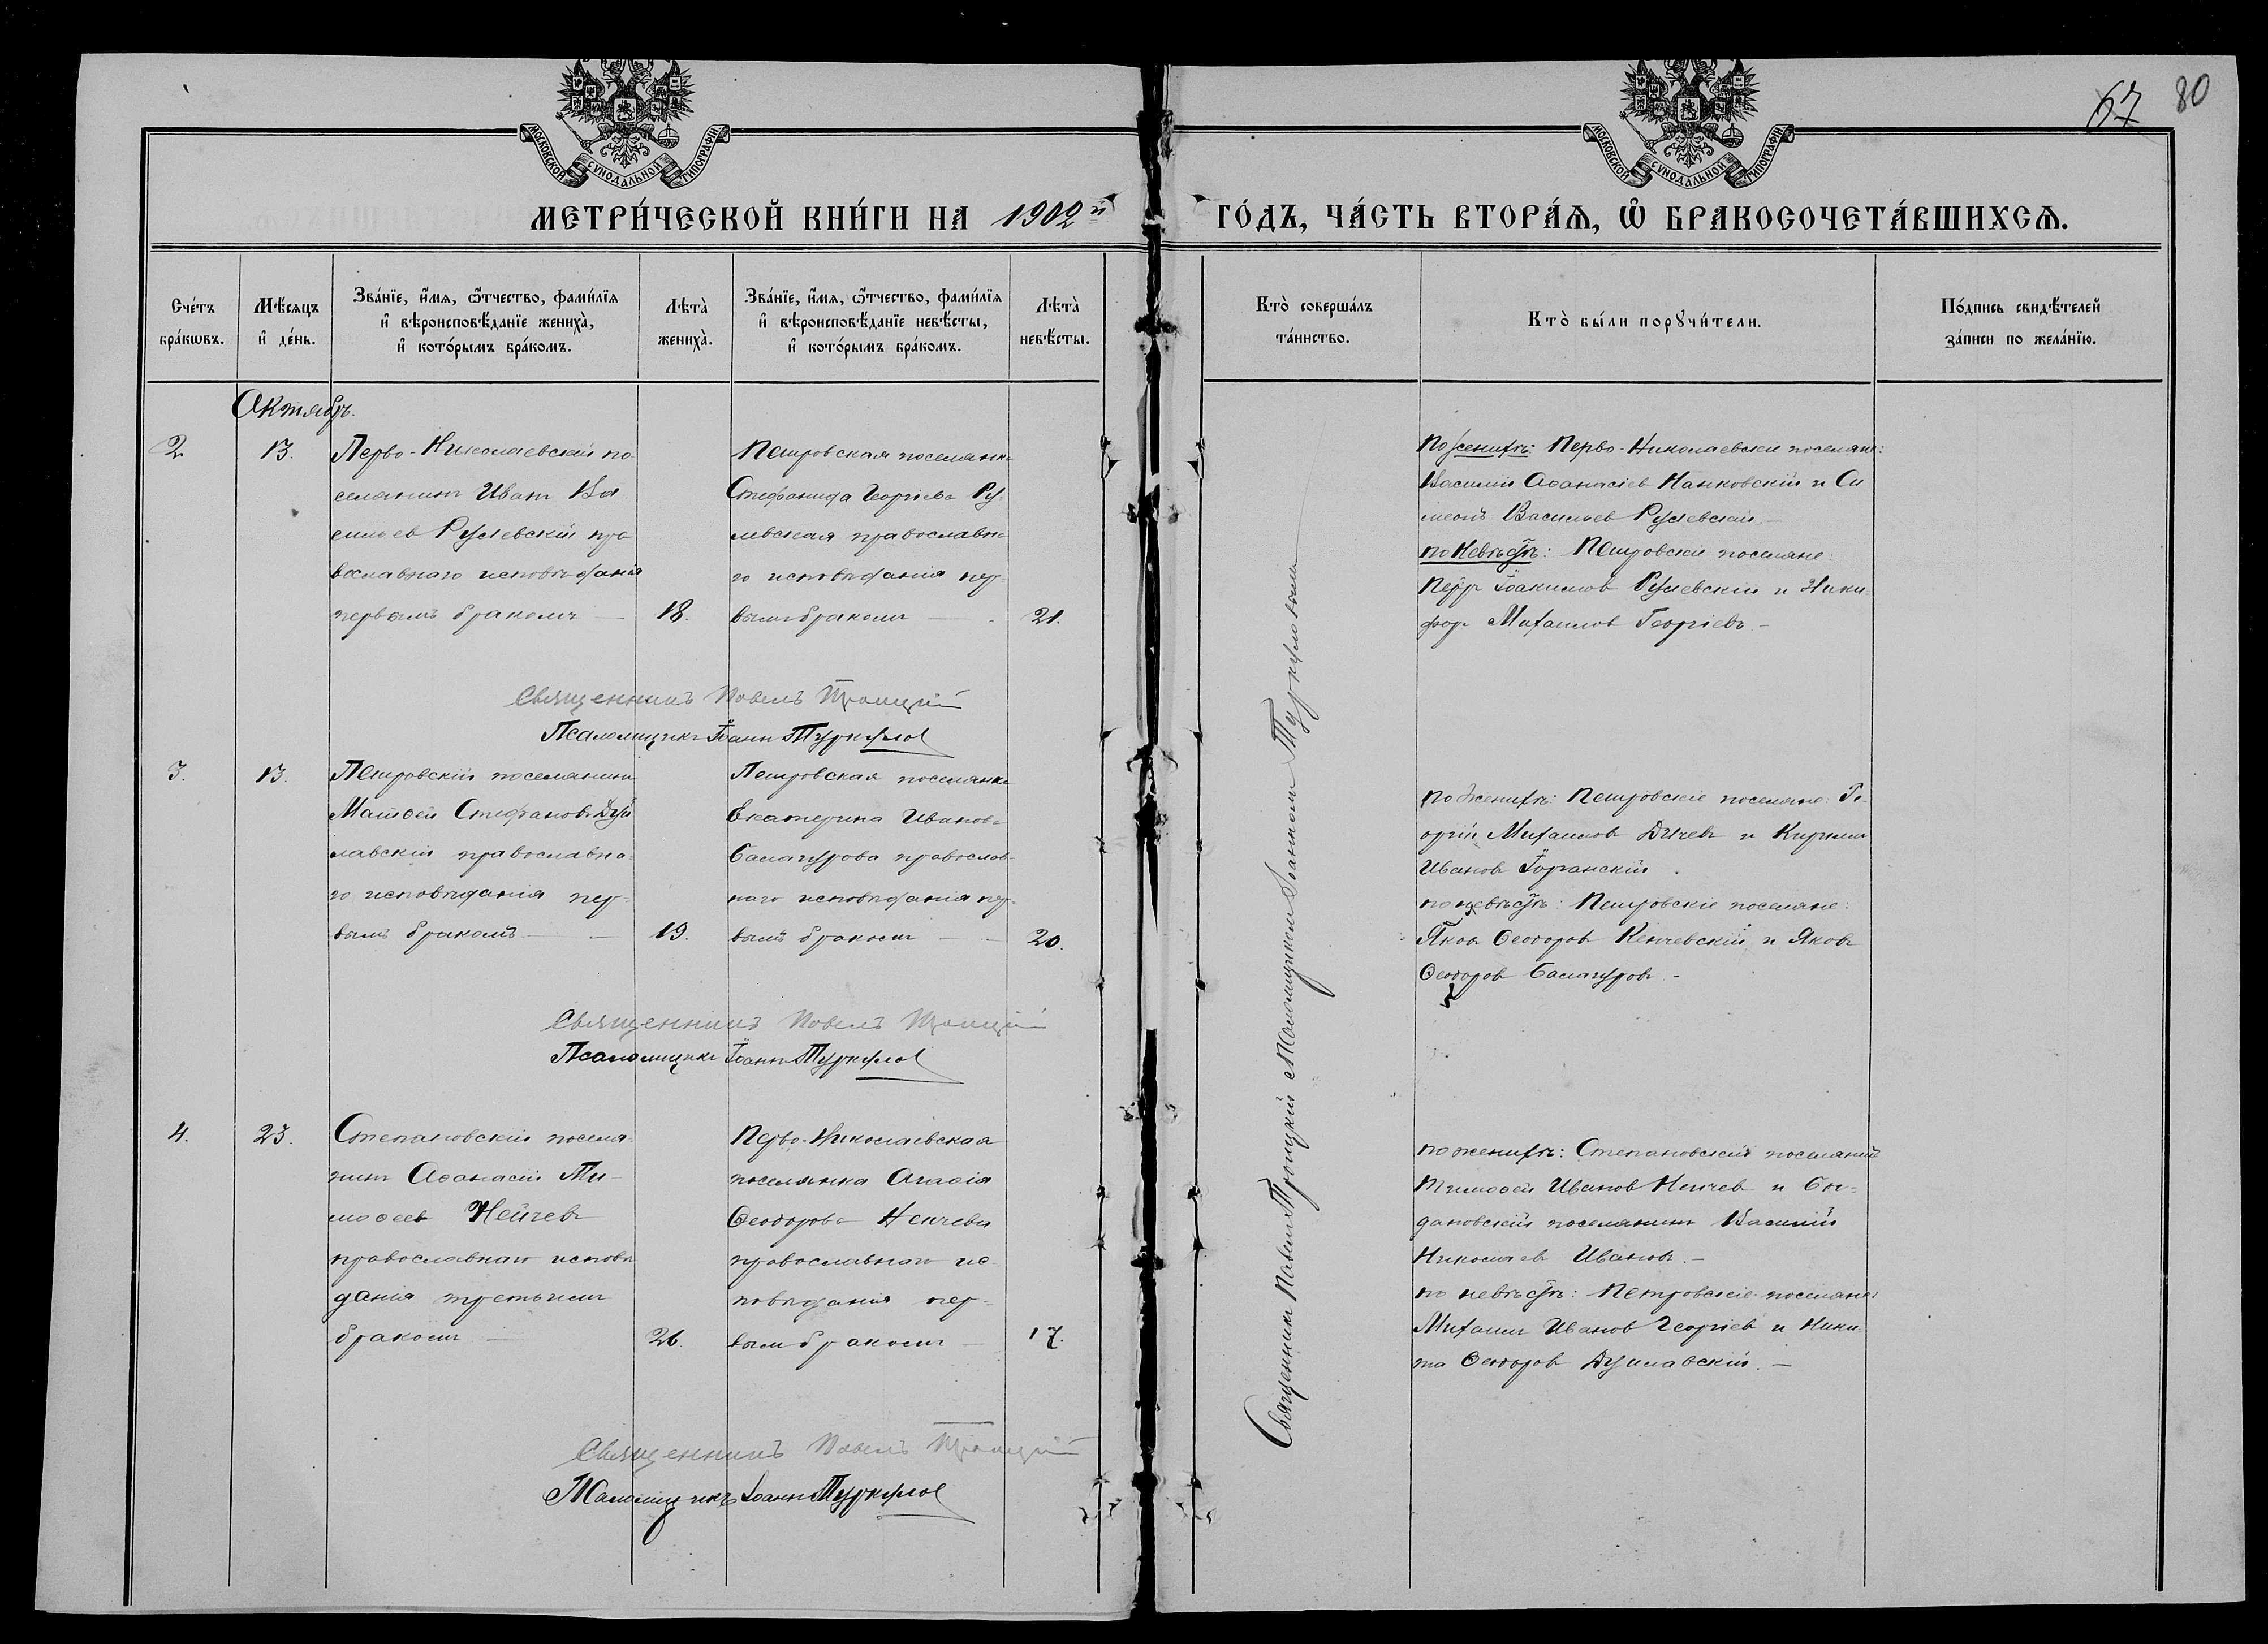 67 80
МОСКОВСКОЙ СУНОДАЛЬНОЙ ТИПОГРАФІИ
МОСКОВСКОЙ СУНОДАЛЬНОЙ ТИПОГРАФІИ
МЕТРИ́ЧЕСКОЙ КНИ́ГИ НА 1902й ГО́ДЪ, ЧА́СТЬ ВТОРА́Ѧ, Ѡ҆ БРАКОСОЧЕТА́ВШИХСѦ.
Сче́тъ
бра́кѡвъ.
Мѣ́сяцъ
и҆ де́нь.
Зва́нїе, и҆́мя, ѻ҆́тчество, фами́лїя
и҆ вѣроисповѣ́данїе жениха̀,
и҆ кото́рымъ бра́комъ.
Лѣта̀
жениха̀.
Зва́нїе, и҆́мя, ѻ҆́тчество, фами́лїя
и҆ вѣроисповѣ́данїе невѣ́сты,
и҆ кото́рымъ бра́комъ.
Лѣта̀
невѣ́сты.
Кто̀ соверша́лъ
та́инство.
Кто̀ бы́ли порꙋчи́тели.
По́дпись свидѣ́телей
за́писи по жела́нїю.
Октябрь.
2
13.
Перво-Николаевскій по-
селянинъ Иванъ Ва-
сильевъ Руслевскій пра
вославнаго исповѣданія
первымъ бракомъ —
18.
Петровская поселянка
Стефанида Георгіева Ру
левская православна
го исповѣданія пер-
вымъ бракомъ —
21.
По женихѣ: Перво-Николаевскіе поселяне:
Василій Аѳанасіевъ Нанковскій и Си
меонъ Васильевъ Руслевскій. —
по невѣстѣ: Петровскіе поселяне:
Петръ Іоакимовъ Руслевскій и Ники-
форъ Михаиловъ Георгіевъ —
Священникъ Павелъ Троицкій
Псаломщикъ Іоаннъ Туркуловъ
3.
13.
Петровскій поселянинъ
Матѳей Стефановъ Дуй
лавскій православна-
го исповѣданія пер-
вымъ бракомъ — —
19.
Петровская поселянка
Екатерина Иванова
Балагурова православ-
наго исповѣданія пер-
вымъ бракомъ — —
20.
по женихѣ: Петровскіе поселяне: Ге-
оргій Михаиловъ Дичевъ и Кириллъ
Ивановъ Горганскій.
по невѣстѣ: Петровскіе поселяне:
Яковъ Ѳеодоровъ Кенчевскій и Яковъ
Ѳеодоровъ Балагуровъ. —
Священникъ Павелъ Троицкій
Псаломщикъ Іоаннъ Туркуловъ
4.
23.
Степановскій поселя-
нинъ Аѳанасій Ти-
моѳеевъ Нейчевъ
православнаго исповѣ
данія третьимъ
бракомъ —
26.
Перво-Николаевская
поселянка Агаѳія
Ѳеодорова Ненчева
православнаго ис-
повѣданія пер-
вымъ бракомъ —
17.
по женихѣ: Степановскій поселянинъ
Тимоѳей Ивановъ Нейчевъ и Бог-
дановскій поселянинъ Василій
Николаевъ Ивановъ. —
по невѣстѣ: Петровскіе поселяне:
Михаилъ Ивановъ Георгіевъ и Ники-
та Ѳеодоровъ Дуйлавскій. —
Священникъ Павелъ Троицкій
Псаломщикъ Іоаннъ Туркуловъ
Священникъ Павелъ Троицкій съ Псаломщикомъ Іоанномъ Туркуловымъ